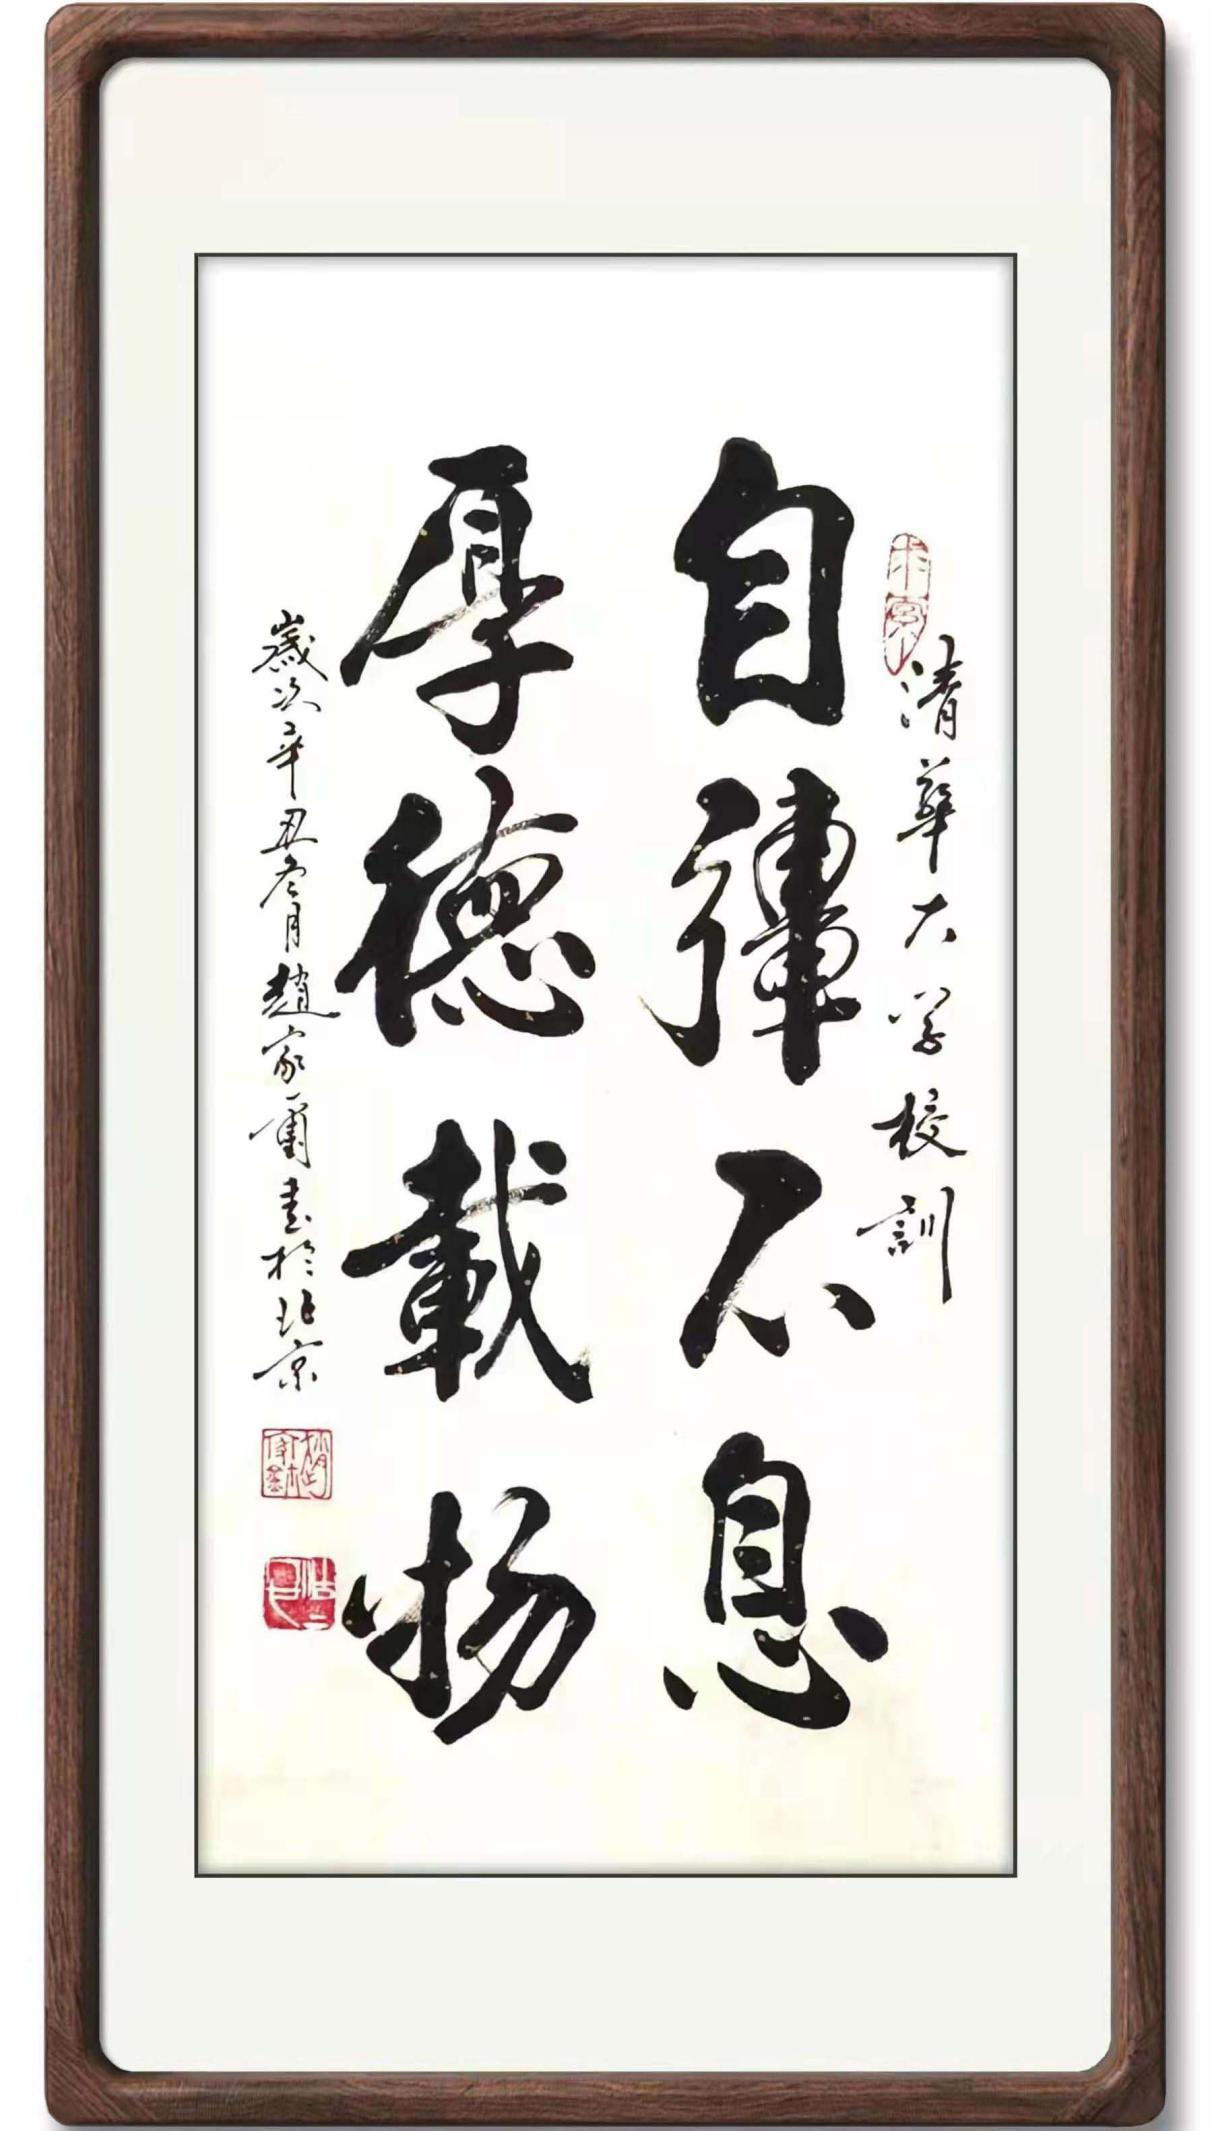 清華大学校訓
自彊不息
厚徳載物
歲次辛丑冬月趙家書於北京